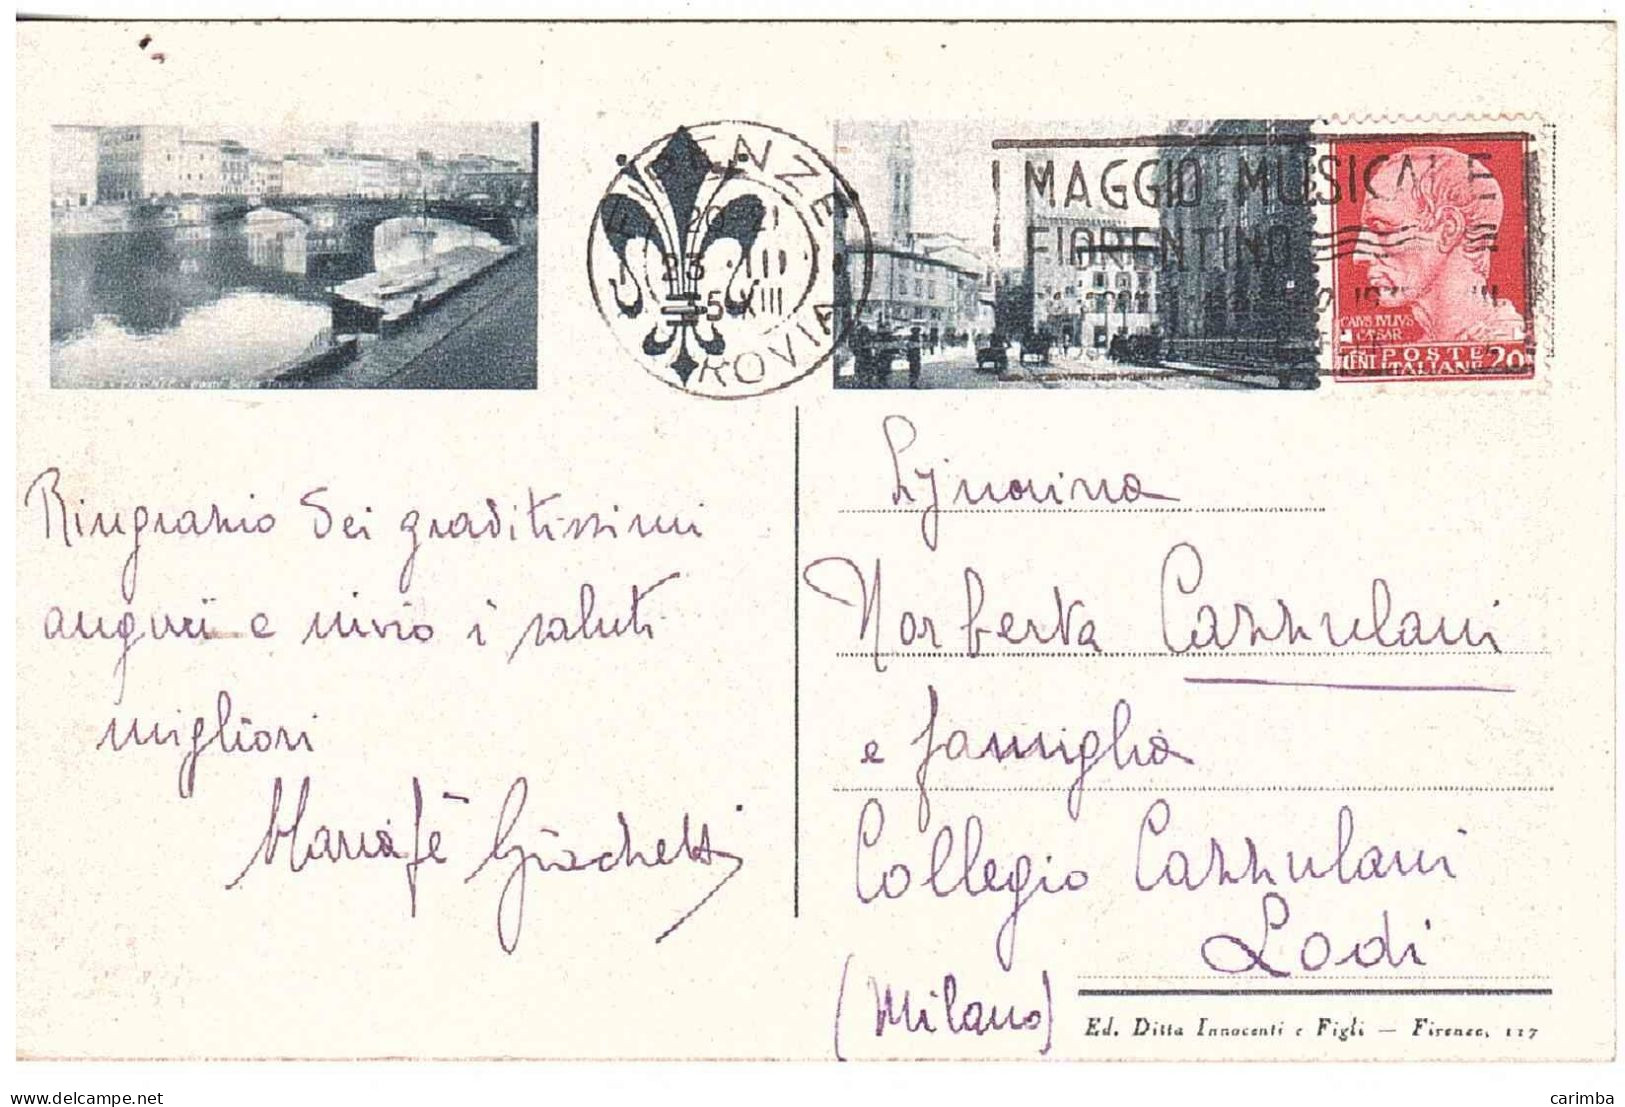 FIRENZE
20-21
23 · III
35 XIII
FERROVIA
MAGGIO MUSICALE
FIORENTINO
CAIVS IVLIVS
CAESAR
CENT POSTE 20
ITALIANE
Ringrazio dei graditissimi
auguri e invio i saluti
migliori
Mariafè Giachetti
Signorina
Norberta Cazzulani
e famiglia
Collegio Cazzulani
Lodi
(Milano)
Ed. Ditta Innocenti e Figli — Firenze, 127
delcampe.net
carimba